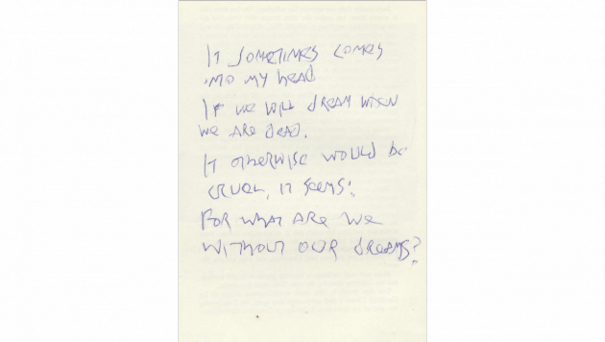 It sometimes comes
into my head
If we will dream when
we are dead.
It otherwise would be
cruel, it seems:
For what are we
without our dreams?